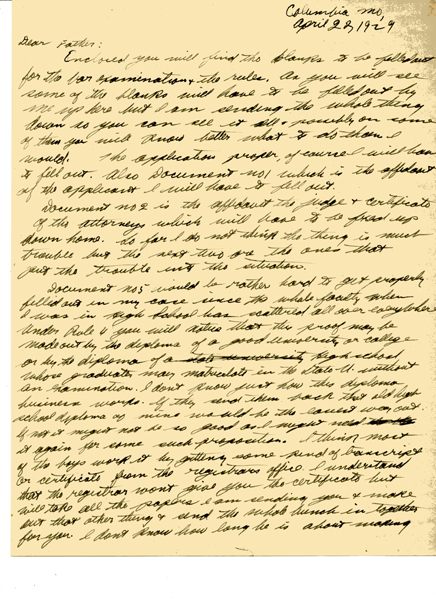 Columbia Mo,
April 22, 1929
Dear Father:
Enclosed you will find the blanks to be filled out
for the bar examination & the rules. As you will see
some of the blanks will have to be filled out by
me up here but I am sending the whole thing
down so you can see it all & possibly on some
of them you will know better what to do than I
would. The application proper of course I will have
to fill out. Also Document no1 which is the affidavit
of the applicant I will have to fill out.
Document no 2 is the affidavit the judge & certificate
of the attorneys which will have to be fixed up
down home. So far I do not think the thing is much
trouble but the next two are the ones that
put the trouble into the situation.
Document no3 would be rather hard to get properly
filled out in my case since the whole faculty when
I was in high school has scattered all over everywhere
Under Rule 4 you will notice that the proof may be
made out by the diploma of a good university or college
or by the diploma of a state university high school
whose graduates may matriculate in the State U. without
an examination. I dont know just how this diploma
business works. If they send them back that old high
school diploma of mine would be the easiest way out
If not it might not be so good as I might need
it again for some such proposition. I think most
of the boys work it by getting some kind of transcript
or certificate from the registrars office. I understand
that the registrar wont give you the certificate but
will take all the papers I am sending you & make
out that other thing & send the whole bunch in together
for you I dont know how long he is about making